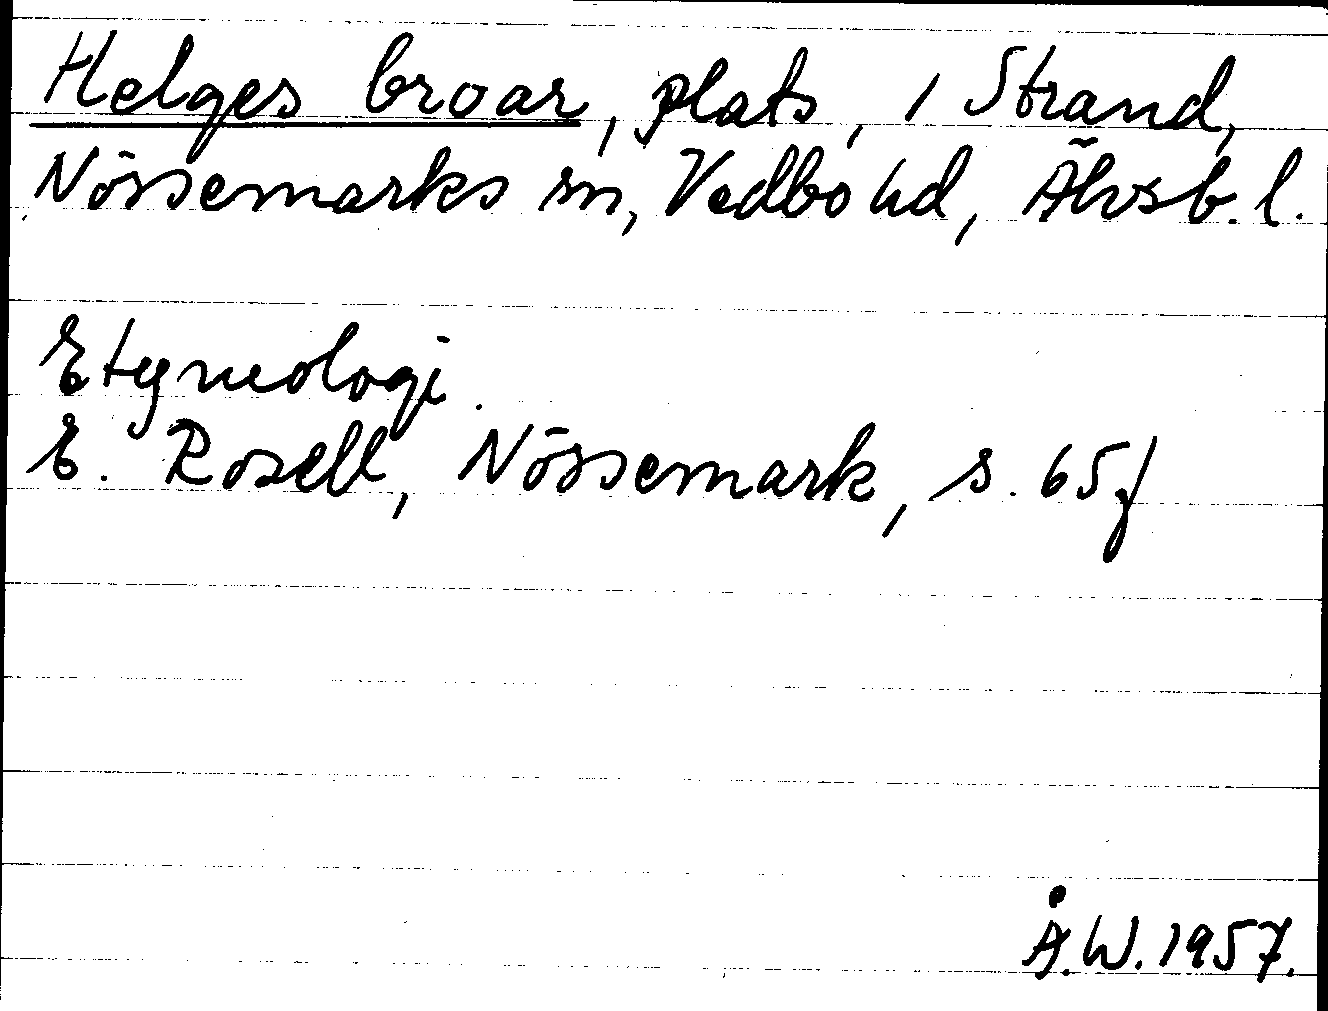 Helges broar, plats, 1 Strand,
Nössemarks sn, Vedbo hd, Älvsb. l.
Etymologi.
E. Rosell, Nössemark, s. 65f
Å.W. 1957.